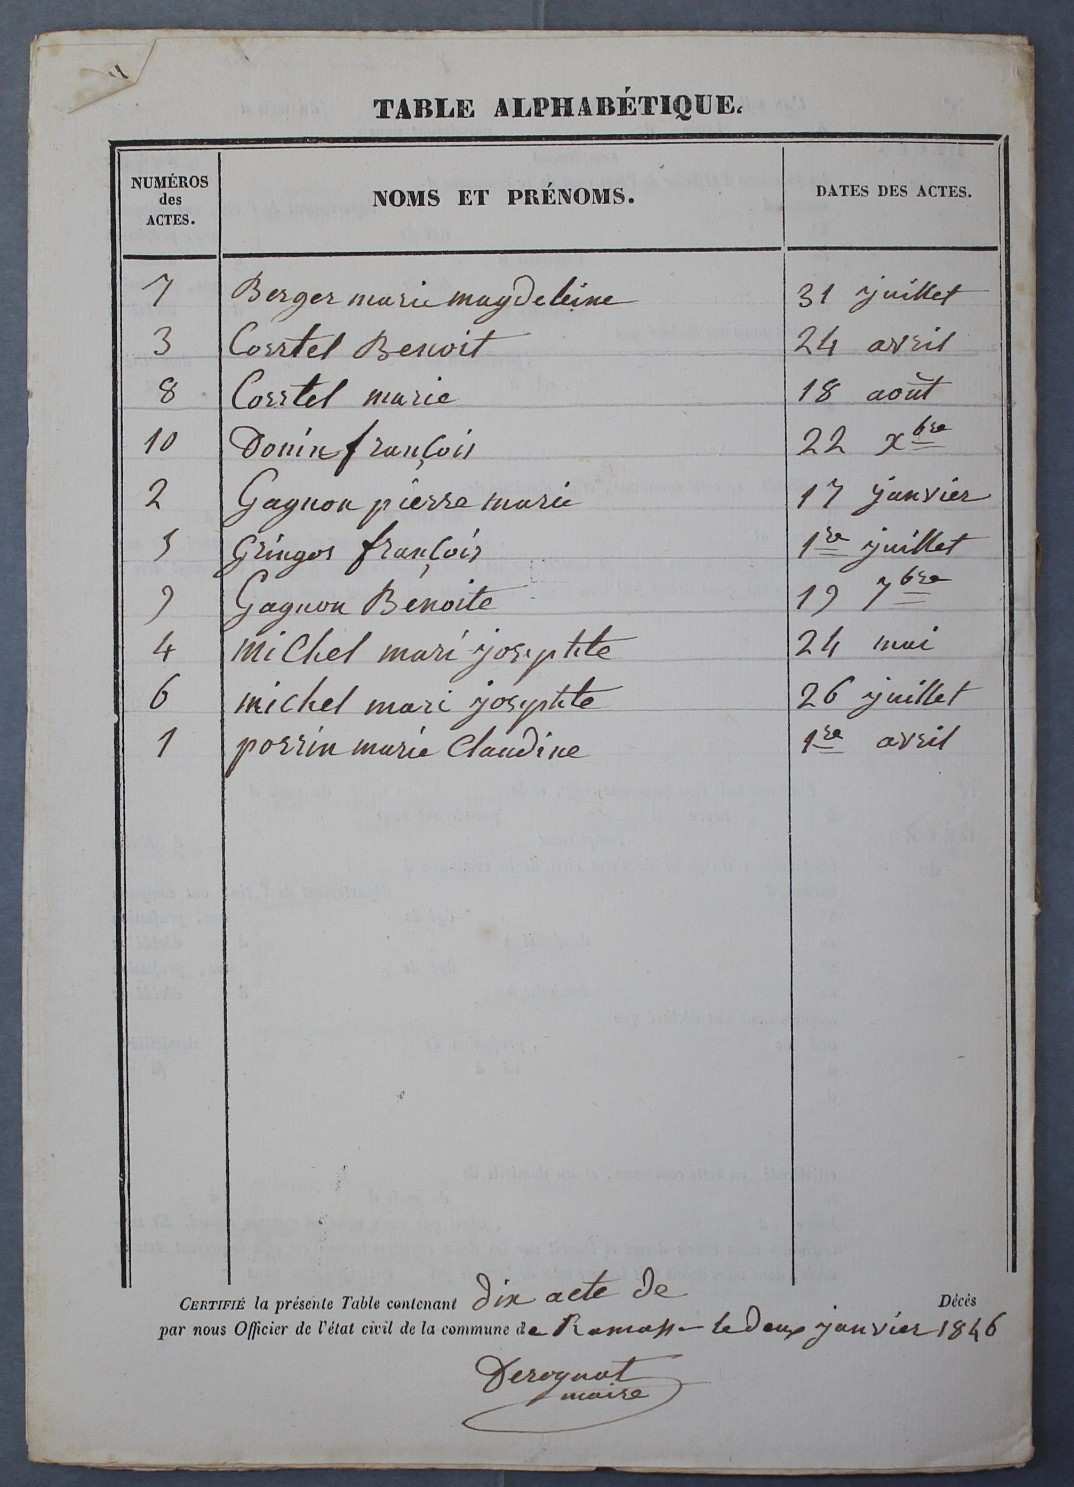 TABLE ALPHABÉTIQUE.
NUMÉROS des ACTES. NOMS ET PRÉNOMS. DATES DES ACTES.
7 Berger marie magdeleine 31 juillet
3 Corrtel Benoit 24 avril
8 Corrtel marie 18 août
10 Donin françois 22 xbre
2 Gagnon pierre marie 17 janvier
5 Gringos françois 1re juillet
9 Gagnon Bénoite 19 7bre
4 michel mari josephte 24 mai
6 michel mari josephte 26 juillet
1 perrin marie Claudine 1re avril
CERTIFIÉ la présente Table contenant dix acte de Décès
par nous Officier de l'état civil de la commune de Ramasse le deux janvier 1846
Derognat
maire